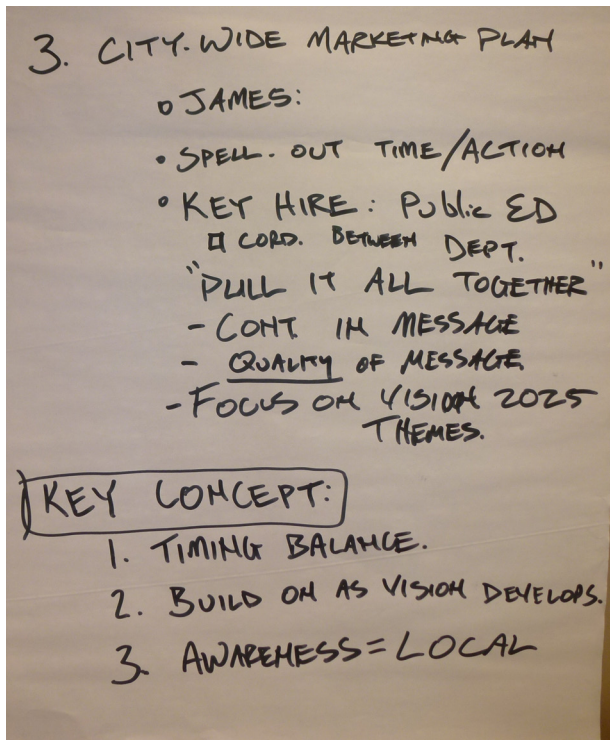 3. CITY-WIDE MARKETING PLAN
• JAMES:
• SPELL-OUT TIME/ACTION
• KEY HIRE: Public ED
□ CORD. BETWEEN DEPT.
"PULL IT ALL TOGETHER"
- CONT IN MESSAGE
- QUALITY OF MESSAGE
- FOCUS ON VISION 2025
THEMES.
KEY CONCEPT:
1. TIMING BALANCE.
2. BUILD ON AS VISION DEVELOPS.
3. AWARENESS = LOCAL